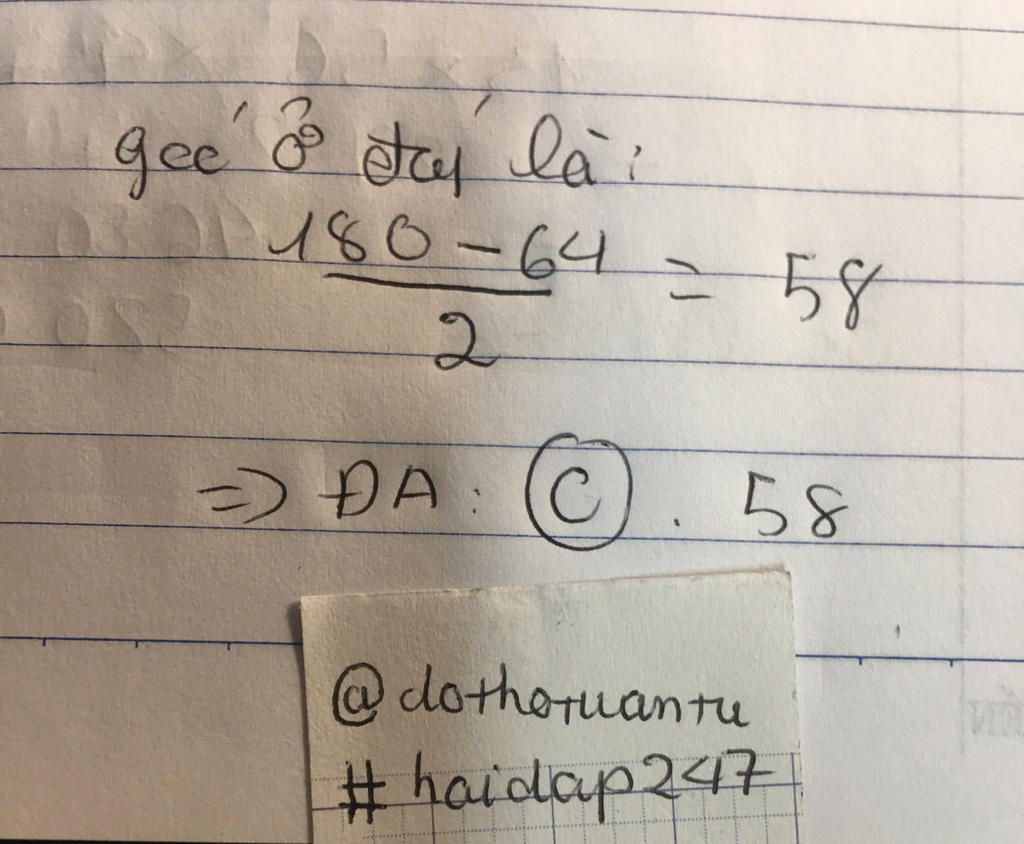 góc ở đáy là:
180 - 64
2
= 58
=> ĐA : C . 58
@dothotuantu
# haidap247